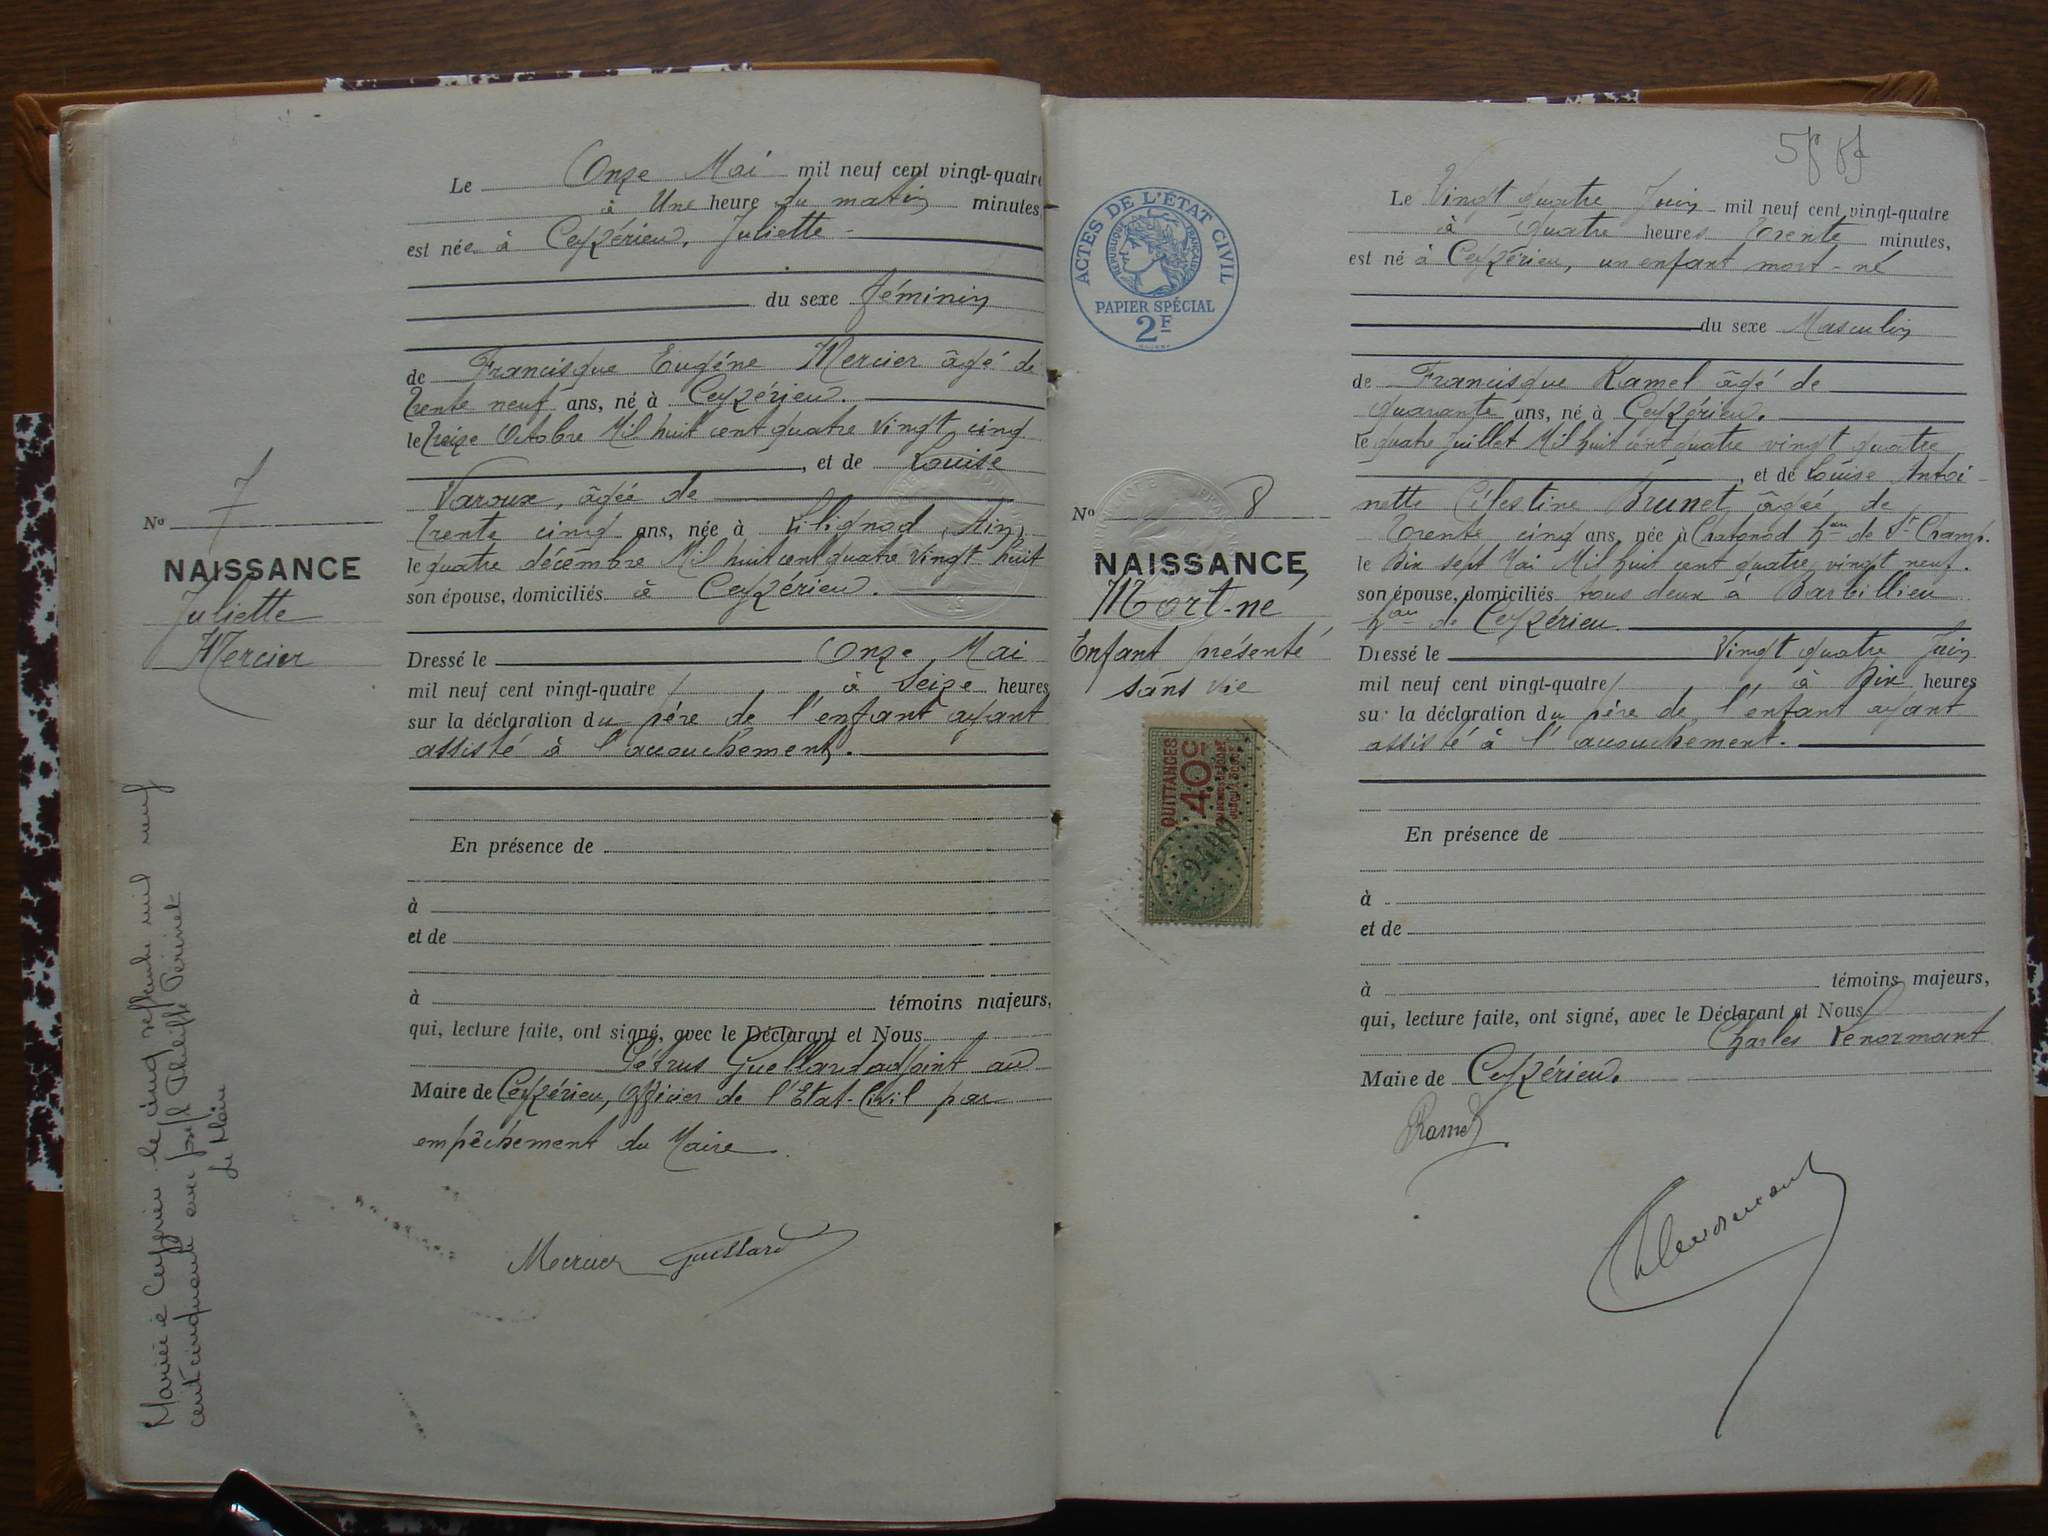 Le Onze Mai mil neuf cent vingt-quatre
à Une heure du matin minutes
est née à Ceyzérieu, Juliette
du sexe féminin
de Francisque Eugéne Mercier âgé de
trente neuf ans, né à Ceyzérieu.
le treize Octobre Mil huit cent quatre vingt cinq
, et de Louise
Varoux, âgée de
trente cinq ans, née à Lilignod (Ain)
le quatre décembre Mil huit cent quatre vingt huit
son épouse, domiciliés à Ceyzérieu.
Dressé le Onze Mai
mil neuf cent vingt-quatre à Seize heures
sur la déclaration du père de l'enfant ayant
assisté à l'accouchement.
En présence de
à
et de
à témoins majeurs,
qui, lecture faite, ont signé, avec le Déclarant et Nous
Pétrus Guillard adjoint au
Maire de Ceyzérieu, officier de l'Etat-Civil par
empêchement du Maire
Mercier Guillard
No 7
NAISSANCE
Juliette
Mercier
Mariée à Ceyzérieu le cinq septembre mil neuf
cent cinquante avec Joseph Philippe Perinet
Le Maire
58
ACTES DE L'ÉTAT CIVIL
RÉPUBLIQUE FRANÇAISE
PAPIER SPÉCIAL
2F
No 8
NAISSANCE
Mort-né
Enfant présenté
sans vie
QUITTANCES
40c
Le Vingt quatre Juin mil neuf cent vingt-quatre
à quatre heures trente minutes,
est né à Ceyzérieu, un enfant mort-né
du sexe Masculin
de Francisque Ramel âgé de
quarante ans, né à Ceyzérieu.
le quatre Juillet Mil huit cent quatre vingt quatre
, et de Louise Antoi-
nette Célestine Brunet âgée de
trente cinq ans, née à Chatonod hau de St Champ.
le Dix sept Mai Mil huit cent quatre vingt neuf.
son épouse, domiciliés tous deux à Barbillieu
hau de Ceyzérieu
Dressé le Vingt quatre Juin
mil neuf cent vingt-quatre à Dix heures
sur la déclaration du père de l'enfant ayant
assisté à l'accouchement.
En présence de
à
et de
à témoins majeurs,
qui, lecture faite, ont signé, avec le Déclarant et Nous
Charles Lenormant
Maire de Ceyzérieu.
Ramel
Lenormant